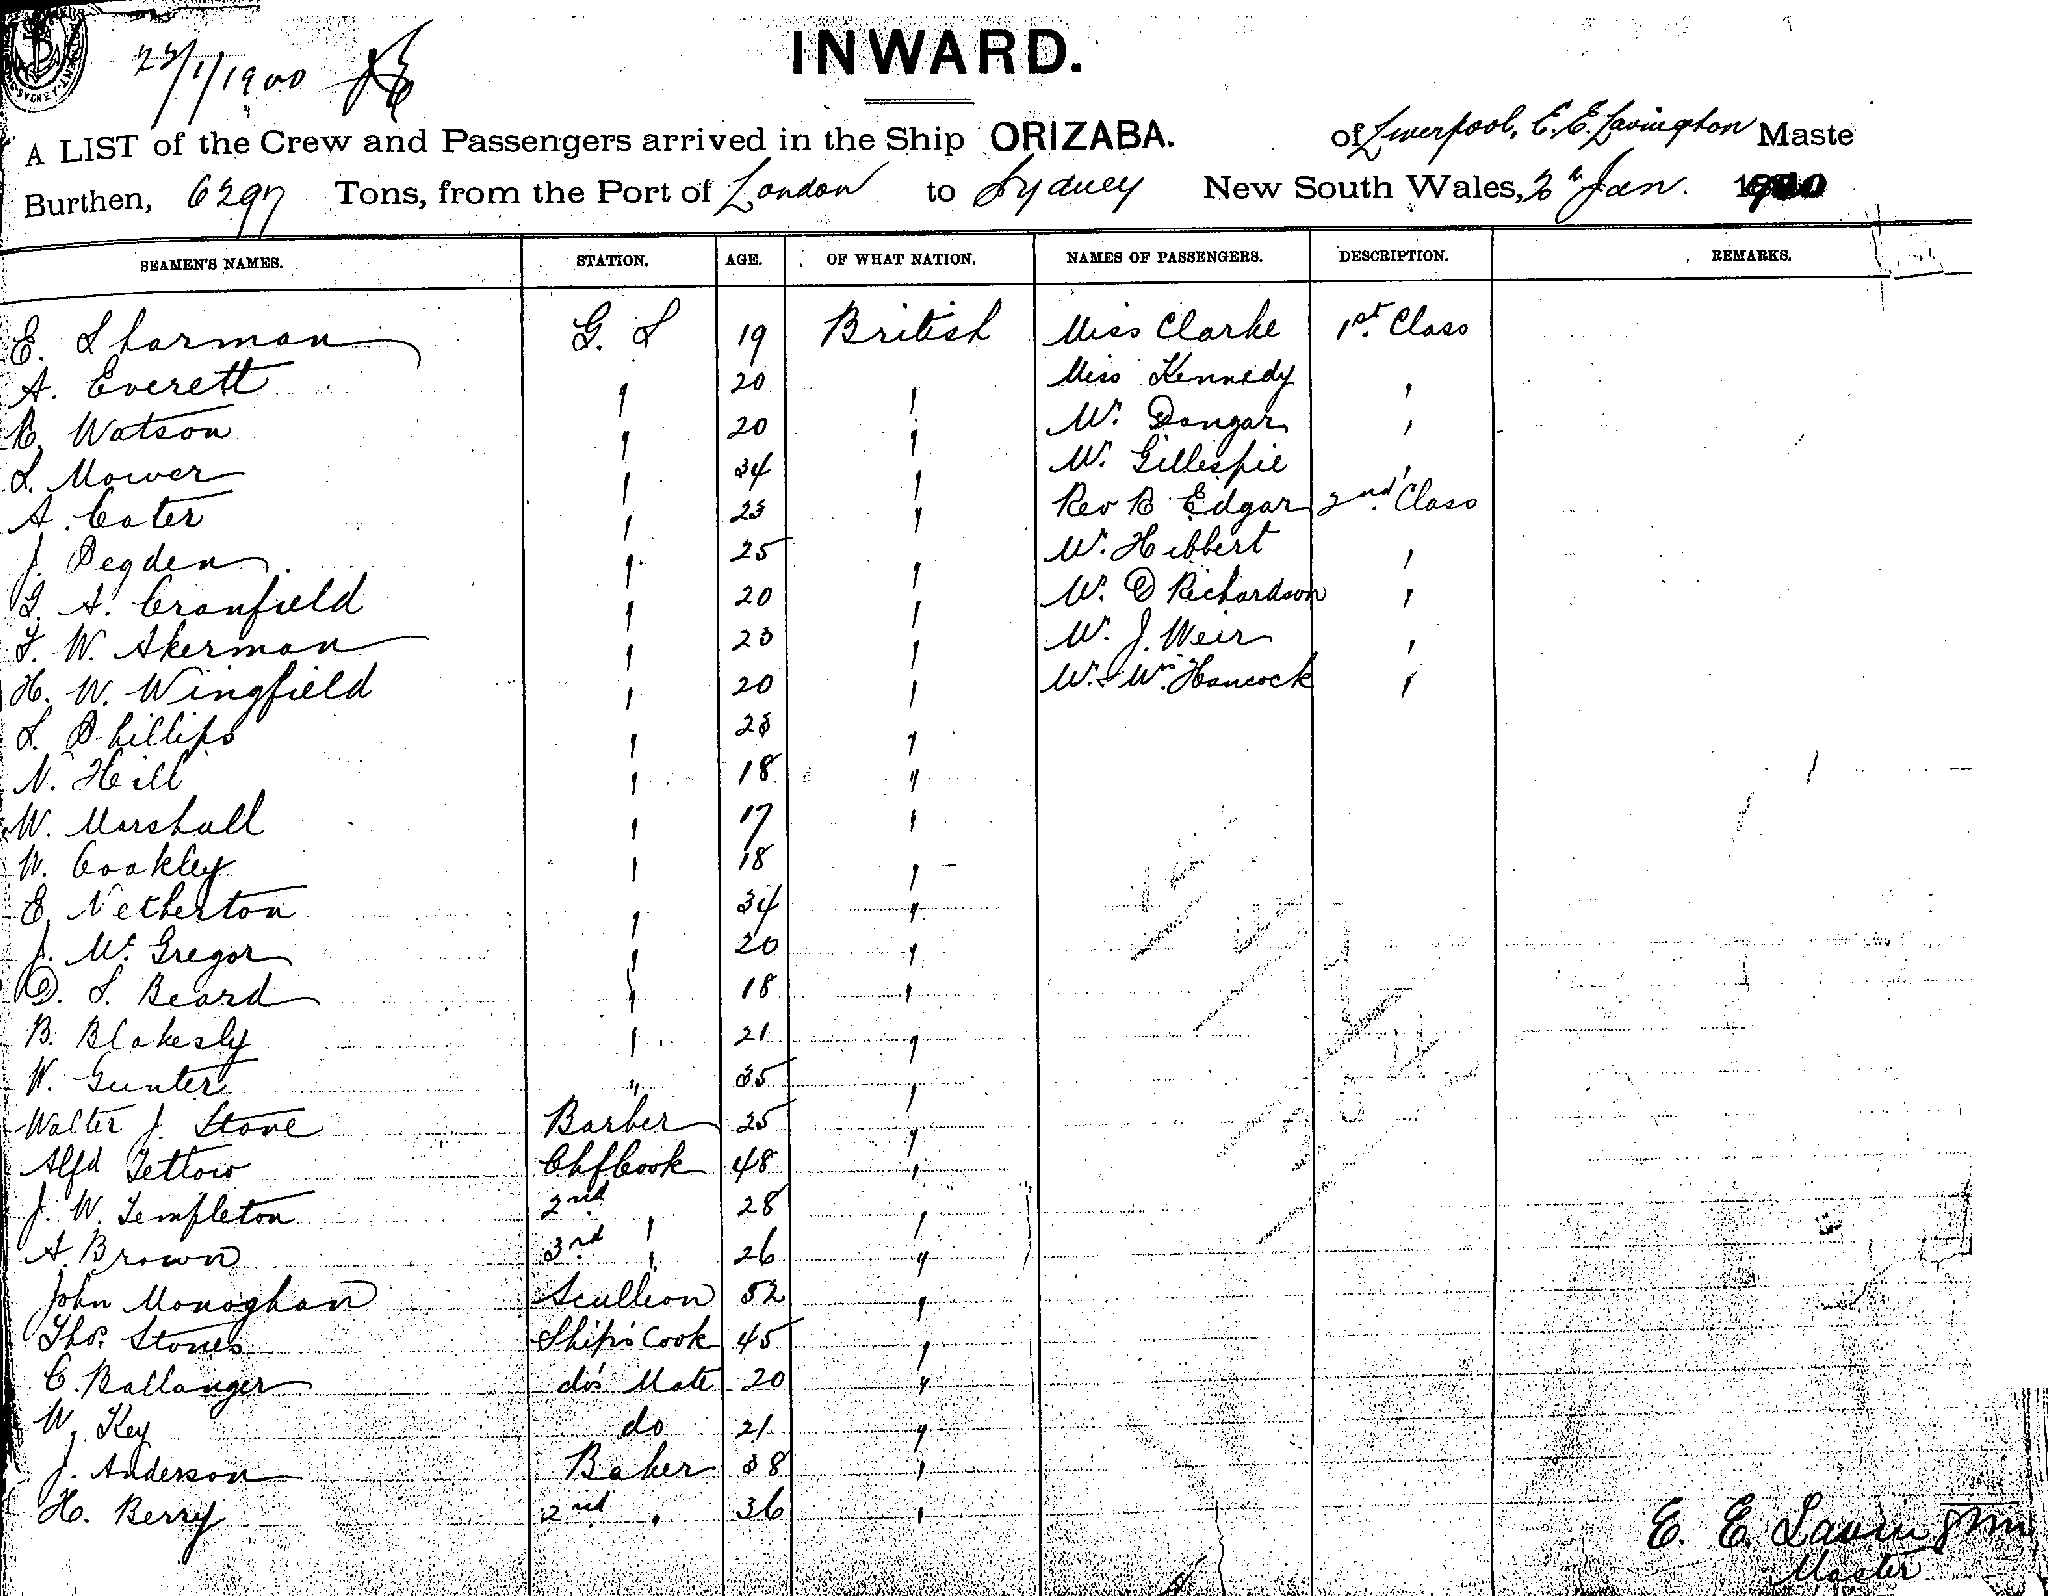 23/1/1900
INWARD.
A LIST of the Crew and Passengers arrived in the Ship ORIZABA. of Liverpool, E. E. Lavington Maste
Burthen, 6297 Tons, from the Port of London to Sydney New South Wales, Jan. 1900
SEAMEN'S NAMES. STATION. AGE. OF WHAT NATION. NAMES OF PASSENGERS. DESCRIPTION. REMARKS.
E. Sharman G. S 19 British Miss Clarke 1st Class
A. Everett " 20 " Miss Kennedy "
R. Watson " 20 " Mr. Dangar "
S. Mower " 34 " Mr. Gillespie "
A. Cater " 23 " Rev B Edgar 2nd Class
J. Pegden " 25 " Mr. Hibbert "
G. A. Cranfield " 20 " Mr. D Richardson "
F. W. Akerman " 23 " Mr. J. Weir "
H. W. Wingfield " 20 " Mr. Wm. Hancock "
S. Phillips " 23 "
N. Hill " 18 "
W. Marshall " 17 "
W. Coakley " 18 "
E. Netherton " 34 "
J. Mc Gregor " 20 "
D. S. Beard " 18 "
B. Blakesly " 21 "
W. Gunter " 35 "
Walter J. Stone Barber 25 "
Alfd Tetlow Chf Cook 48 "
J. W. Templeton 2nd " 28 "
A. Brown 3rd " 26 "
John Monaghan Scullion 52 "
Thos. Stones Ship's Cook 45 "
C. Ballanger do's Mate 20 "
W. Key do 21 "
J. Anderson Baker 38 "
H. Berry 2nd " 36 "
E. E. Lavington
Master